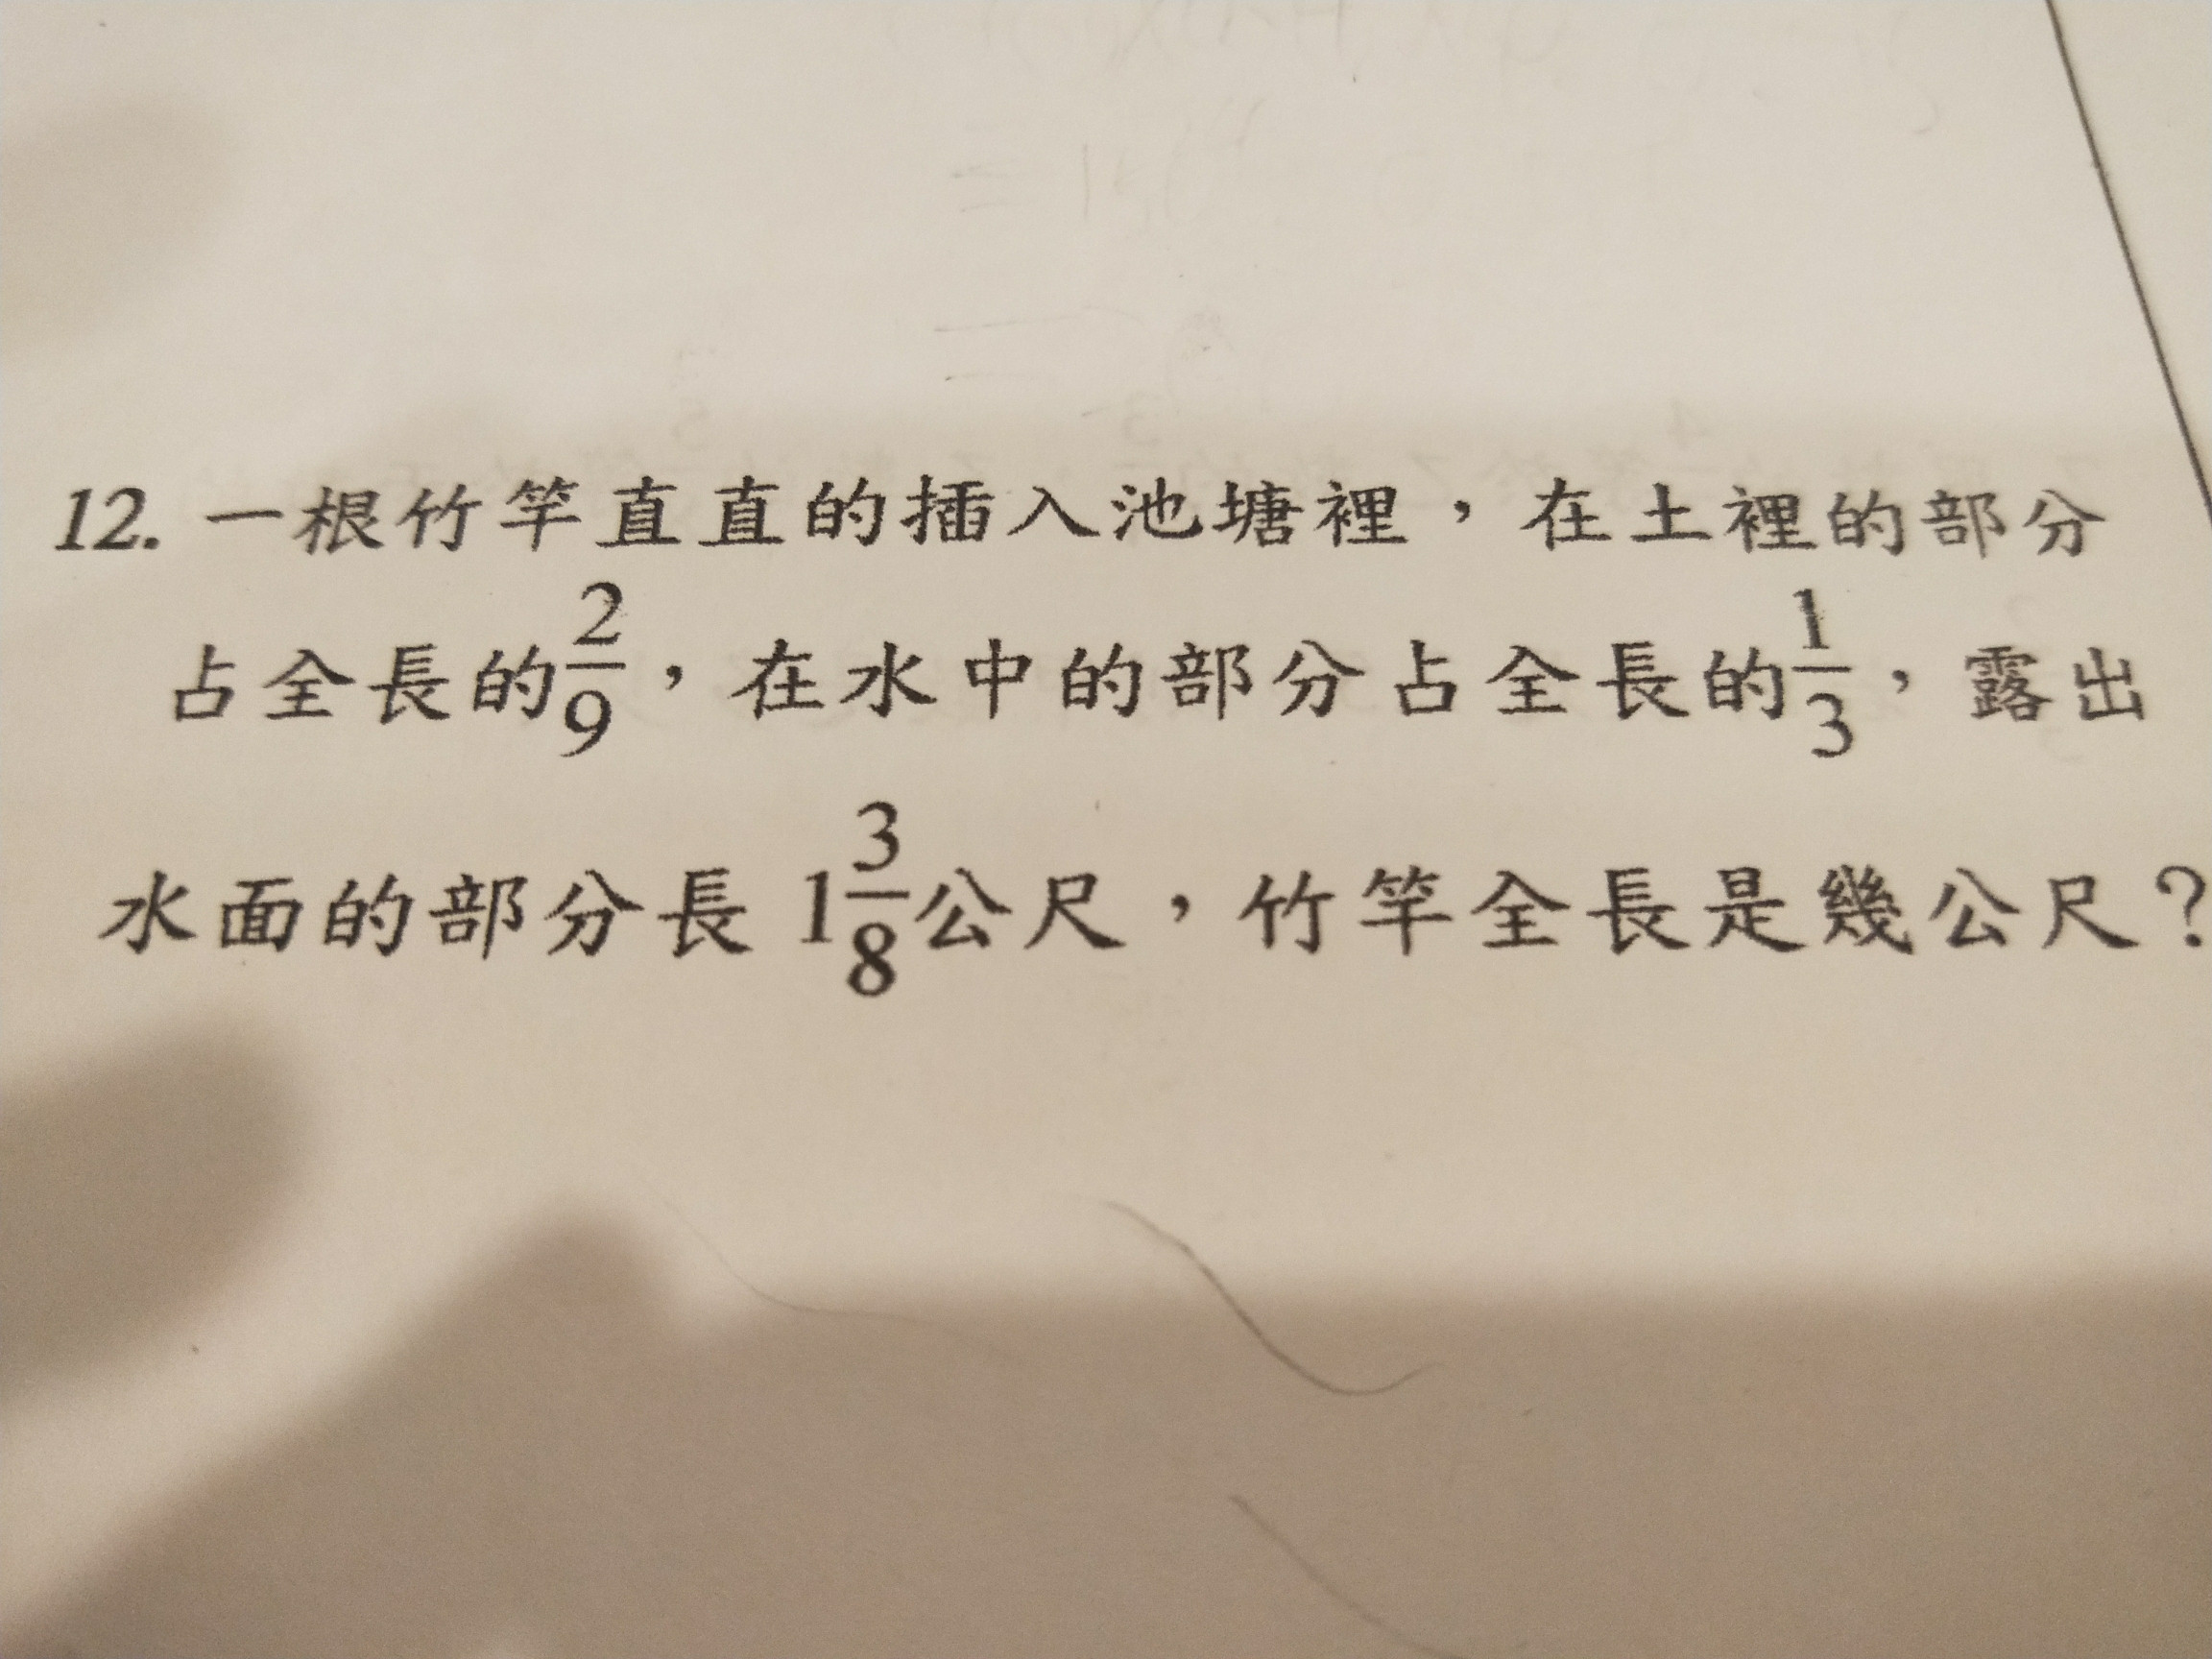 12. 一根竹竿直直的插入池塘裡，在土裡的部分
占全長的2/9，在水中的部分占全長的1/3，露出
水面的部分長 1 3/8公尺，竹竿全長是幾公尺？